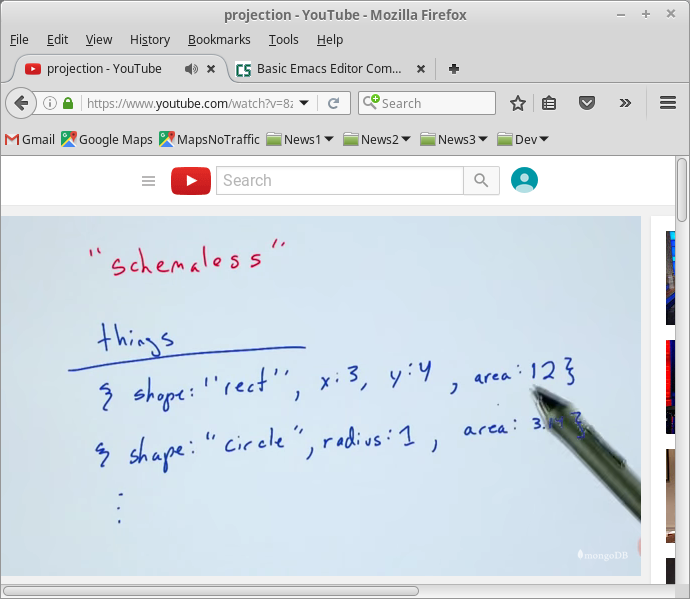 projection - YouTube - Mozilla Firefox
File Edit View History Bookmarks Tools Help
projection - YouTube
Basic Emacs Editor Com...
https://www.youtube.com/watch?v=8z
Search
Gmail Google Maps MapsNoTraffic News1 News2 News3 Dev
Search
"schemaless"
things
{ shape: "rect", x: 3, y: 4, area: 12 }
{ shape: "circle", radius: 1, area: 3.14 }
⋮
mongoDB